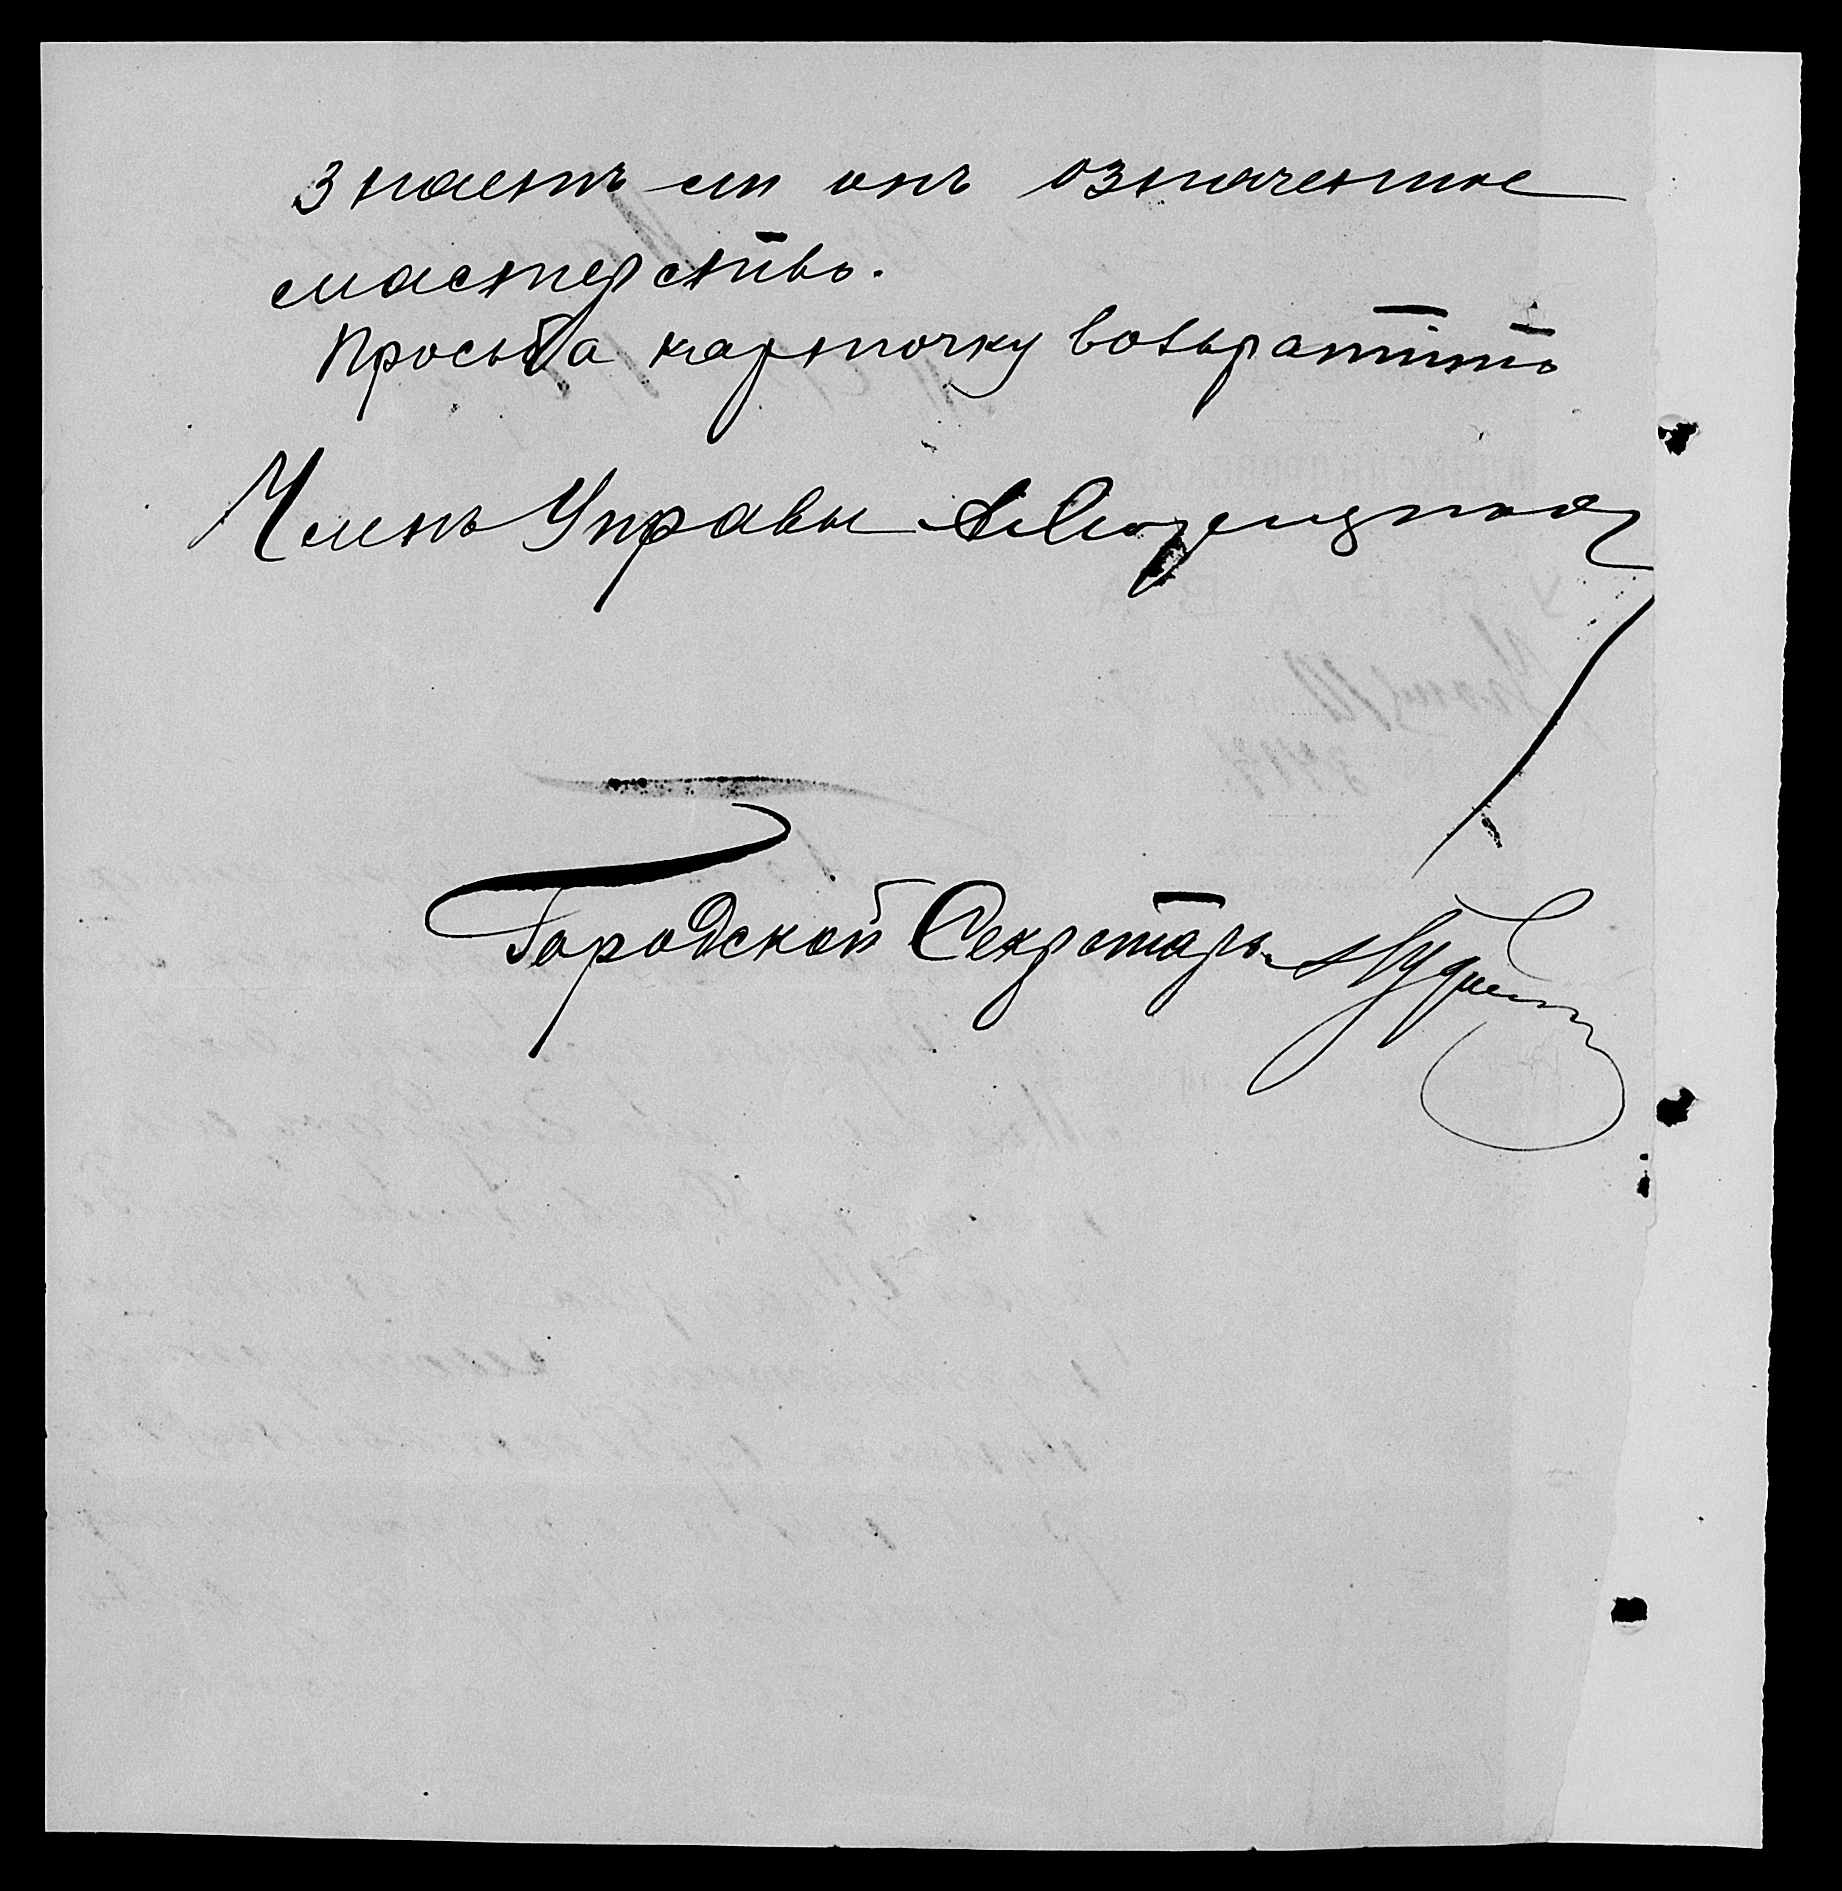 Знаетъ ли онъ означенное
мастерство.
Просьба карточку возвратить
Членъ Управы
Городской Секретарь